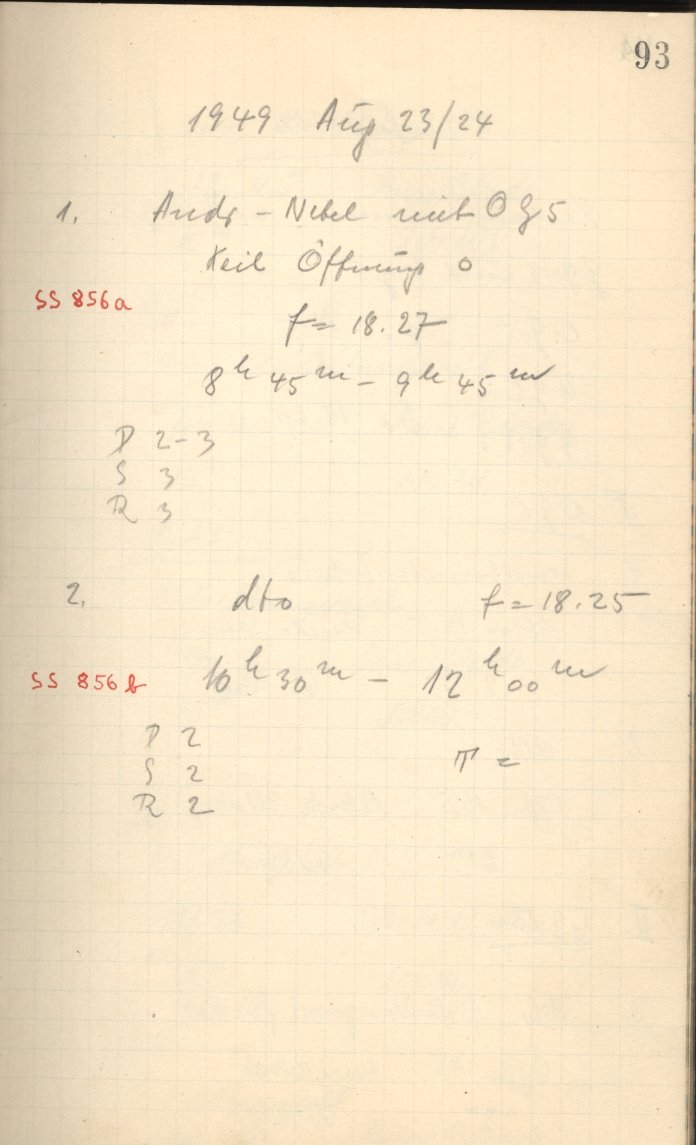 93
1949 Aug 23/24
1. Andr-Nebel mit O G 5
Keil Öffnung o
SS 856a
f = 18.27
8h 45m - 9h 45m
D 2-3
S 3
R 3
2. dto f = 18.25
SS 856b 10h 30m - 12h 00m
D 2
S 2 T =
R 2